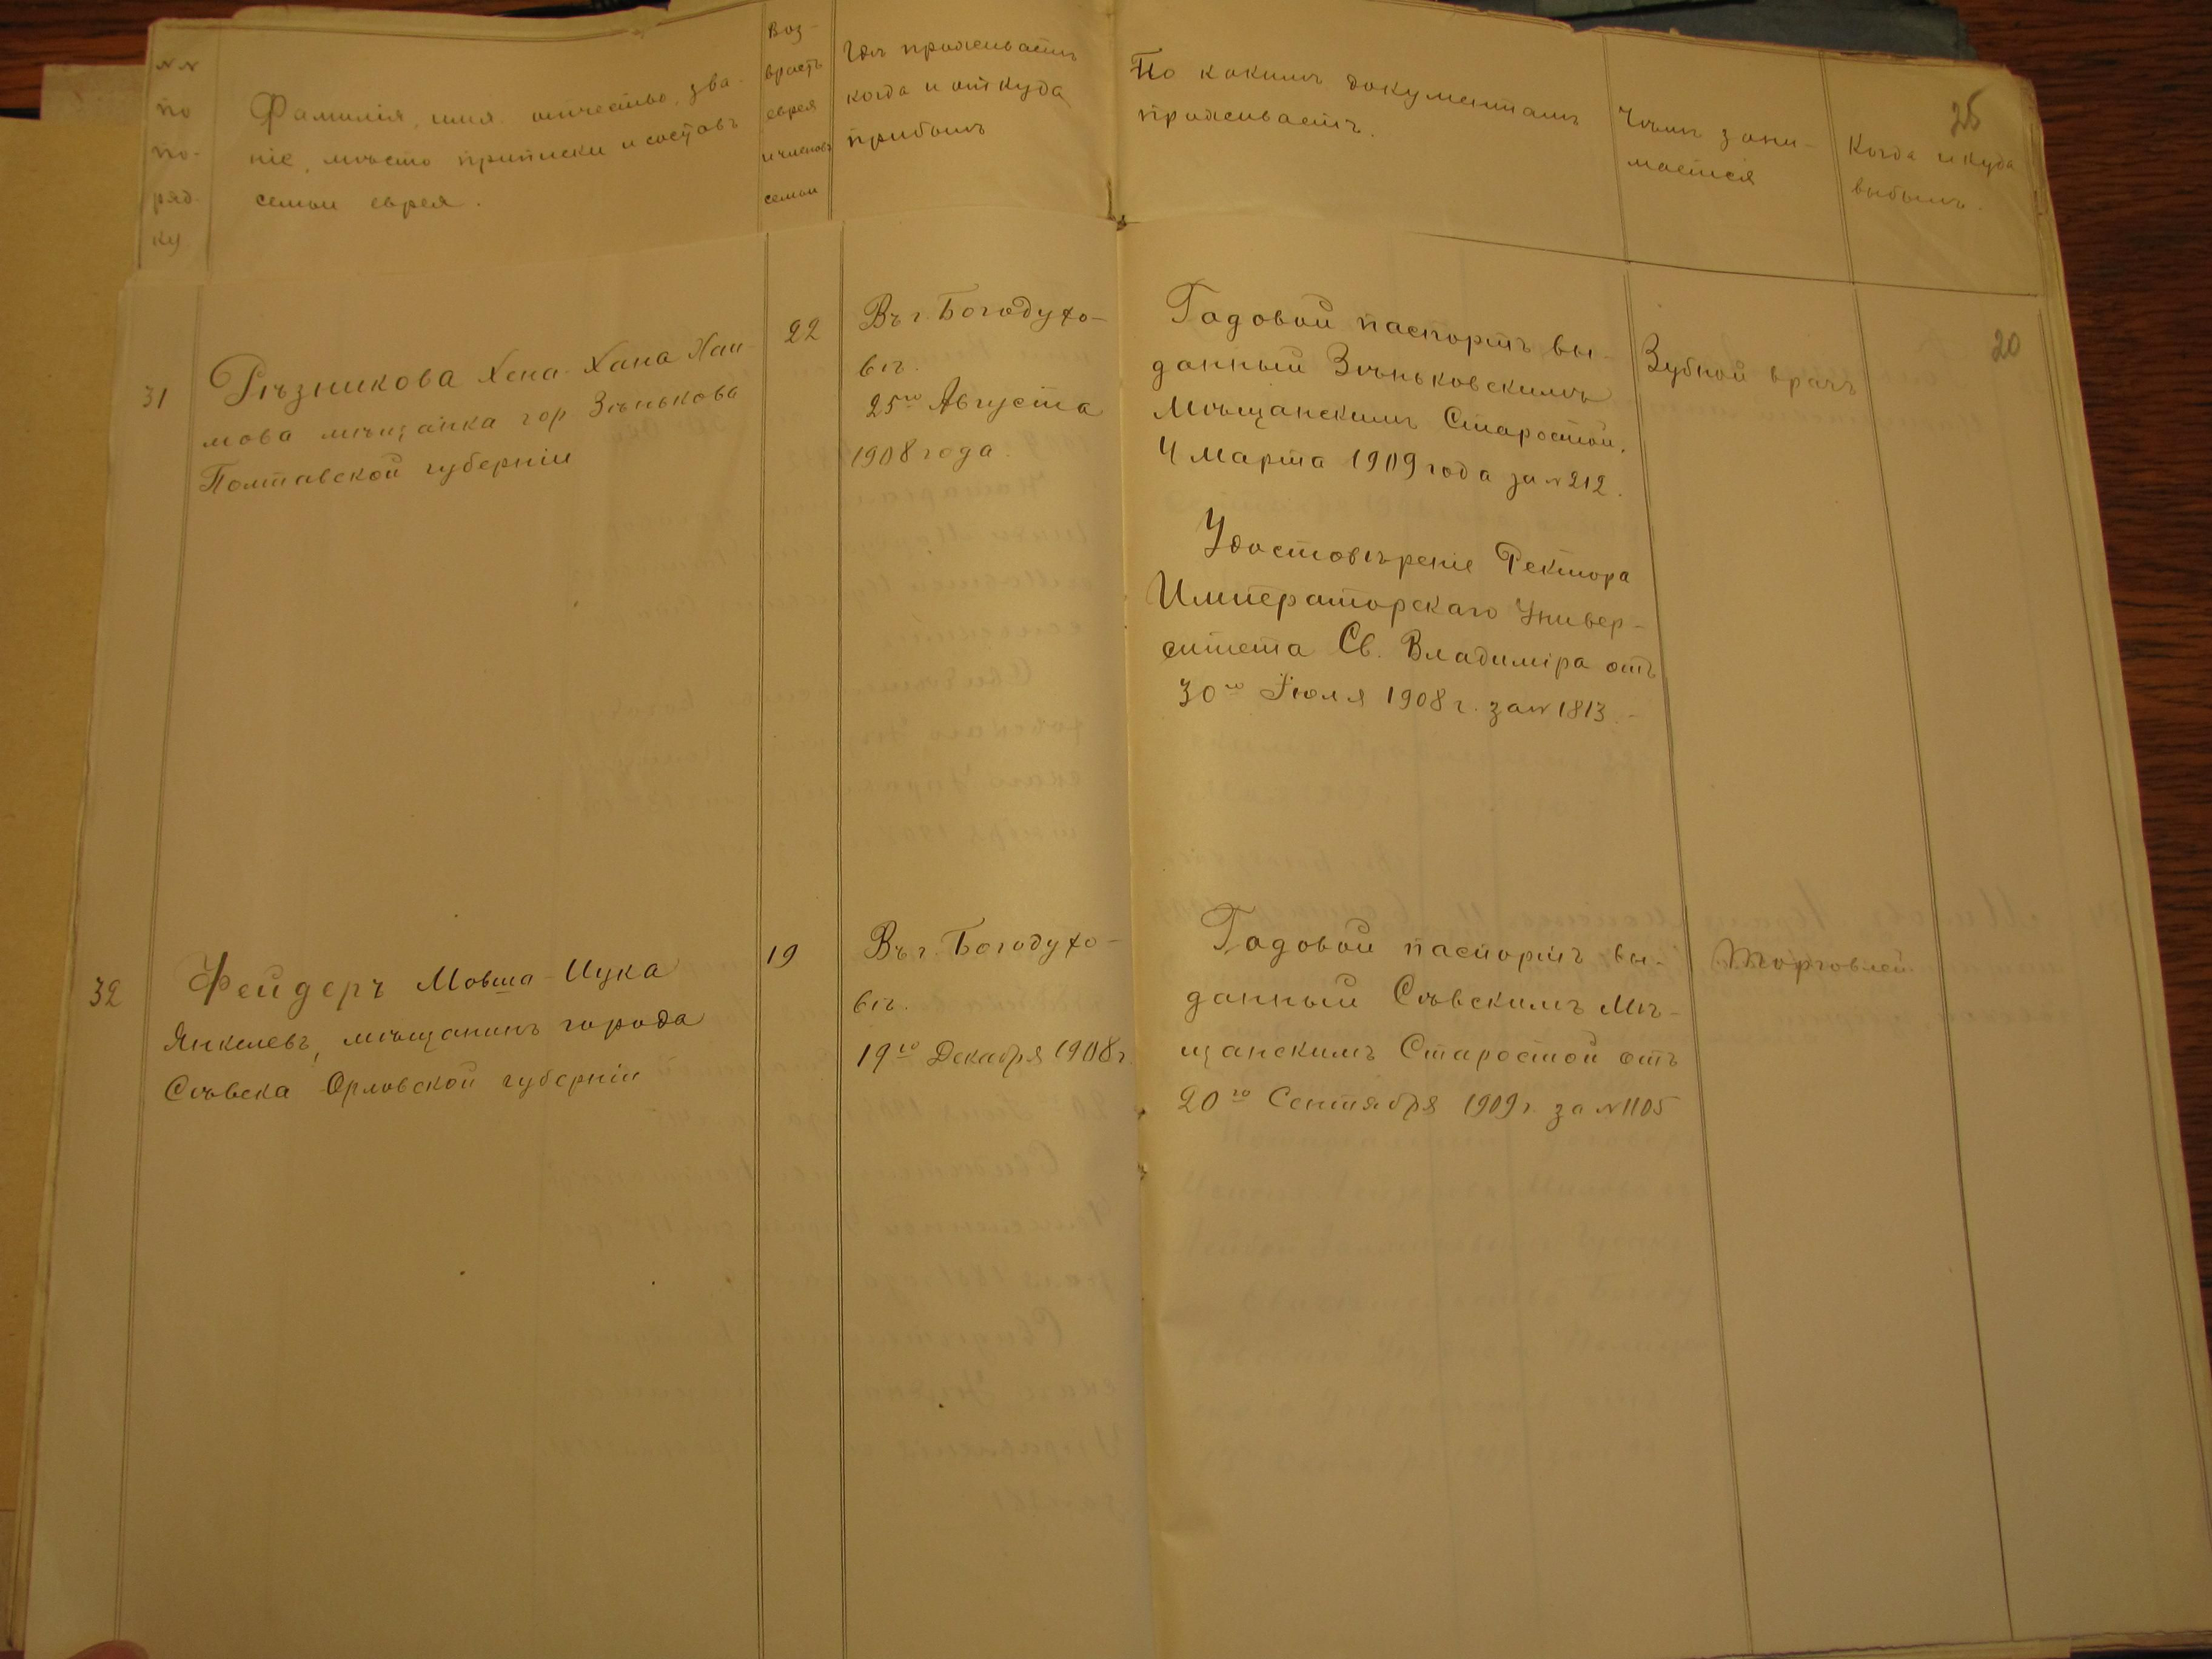 №№
по
по-
ряд-
ку
Фамилія, имя, отчество, зва-
ніе, мѣсто приписки и составъ
семьи еврея.
Воз-
врастъ
еврея
и членовъ
семьи
Гдѣ проживаетъ
когда и откуда
прибылъ
По какимъ документамъ
проживаетъ.
Чѣмъ зани-
мается
Когда и куда
выбылъ.
25
20
31
Рѣзникова Хена-Хана Хаи-
мова мѣщанка гор Зѣнькова
Полтавской губерніи
22
Въ г. Богодухо-
вѣ.
25го Августа
1908 года.
Годовой паспортъ вы-
данный Зѣньковскимъ
Мѣщанскимъ Старостой.
4 Марта 1909 года за № 212.
Удостовѣреніе Ректора
Императорскаго Универ-
ситета Св. Владиміра отъ
30го Іюля 1908 г. за № 1813.-
Зубной врачъ
32
Фейдеръ Мовша-Ицка
Янкелевъ, мѣщанинъ города
Сѣвска Орловской губерніи
19
Въ г. Богодухо-
вѣ.
19го Декабря 1908 г.
Годовой паспортъ вы-
данный Сѣвскимъ Мѣ-
щанскимъ Старостой отъ
20го Сентября 1909 г. за № 1105
Торговлей